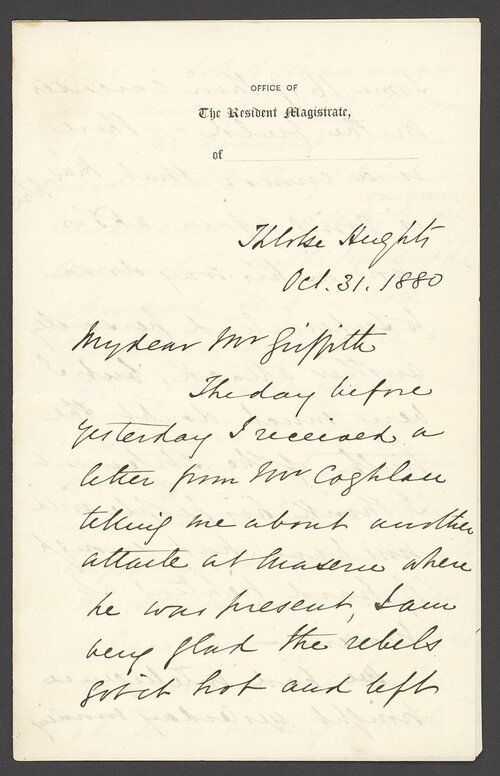 OFFICE OF
The Resident Magistrate,
of
Thlotse Heights
Oct. 31. 1880
My dear Mr Griffith
The day before
yesterday I received a
letter from Mr Coghlan
telling me about another
attack at Maseru where
he was present, I am
very glad the rebels
got it hot and left